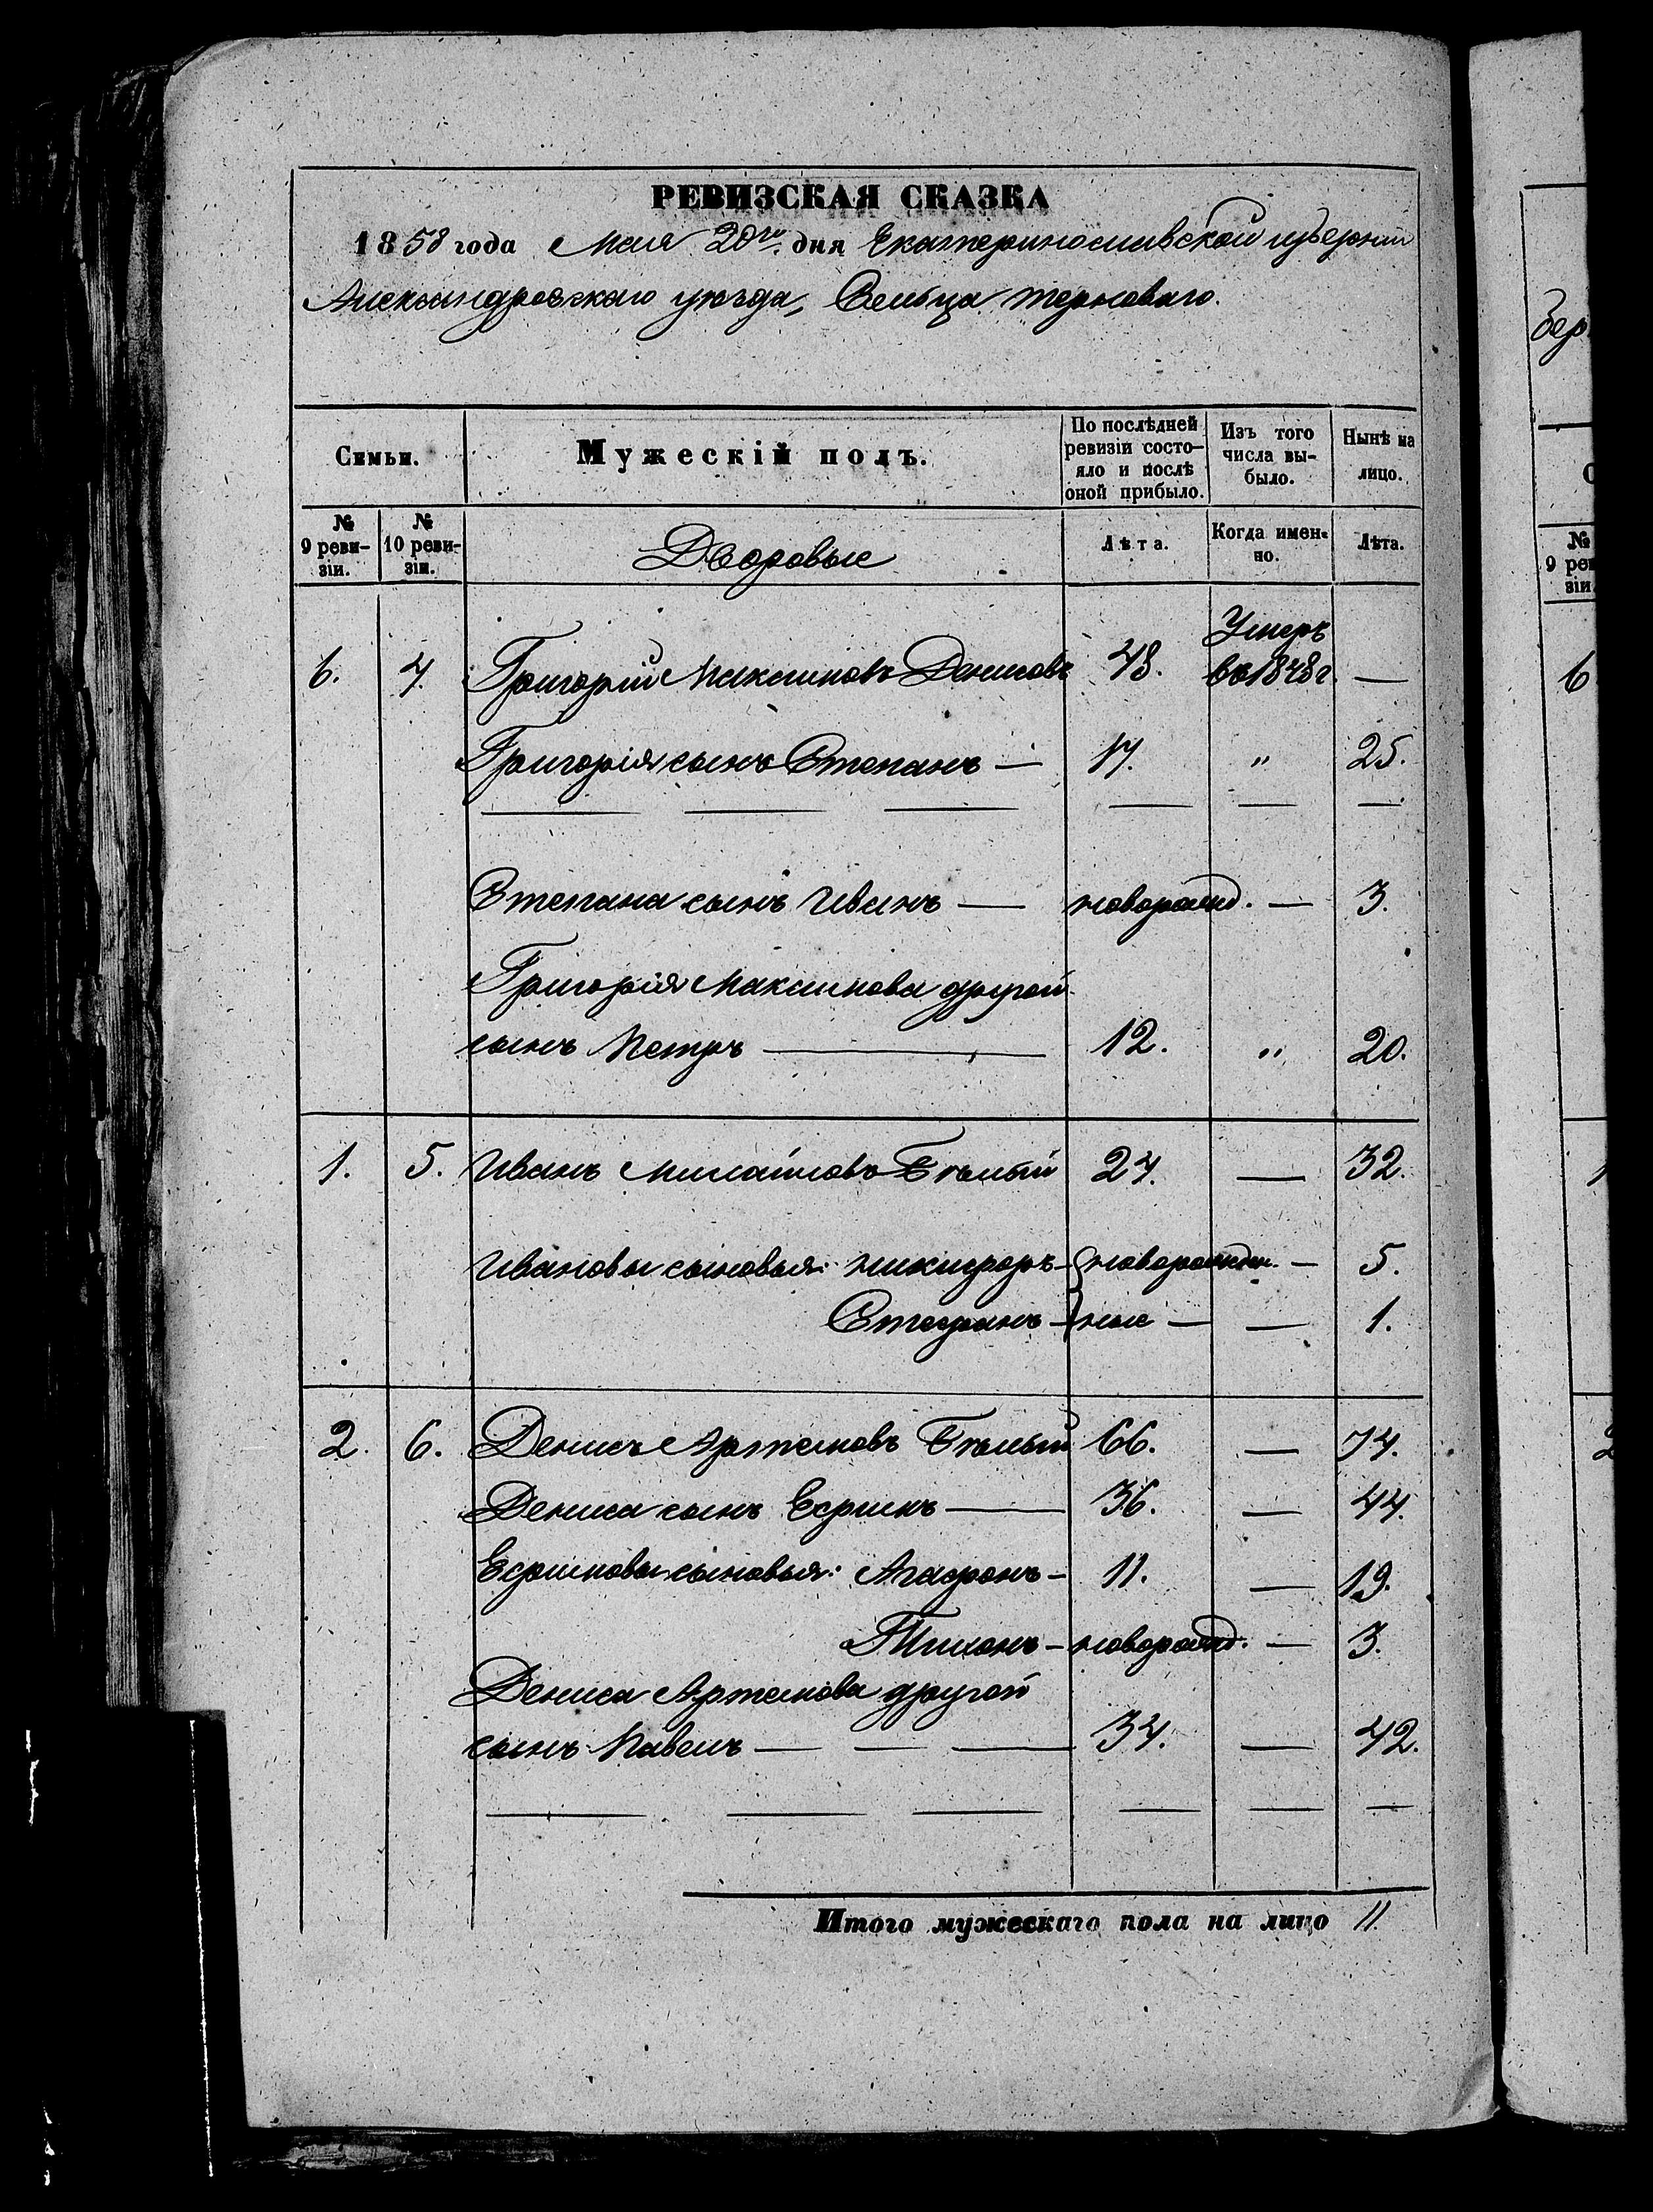 РЕВИЗСКАЯ СКАЗКА
1858 года Мая 20го дня Екатеринославской губернии
Александровскаго уѣзда, Сельца терноваго.
Семьи.
Мужескій полъ.
По послѣдней ревизіи состояло и послѣ оной прибыло.
Изъ того числа выбыло.
Нынѣ на лицо.
№ 9 ревизіи.
№ 10 ревизіи.
Дворовые
Лѣта.
Когда именно.
Лѣта.
6. 4. Григорій Максимовъ Денисовъ 48. Умеръ въ 1848 г. —
Григорія сынъ Степанъ — 17. " 25.
Степана сынъ Иванъ — новорожд. — 3.
Григорія Максимова другой
сынъ Петръ — 12. " 20.
1. 5. Иванъ Михайловъ Бѣлый 24. — 32.
Ивановы сыновья: Никифоръ — новорожден. — 5.
Стефанъ — ные — — 1.
2. 6. Денисъ Артемовъ Бѣлый 66. — 74.
Дениса сынъ Ефимъ — 36. — 44.
Ефимовы сыновья: Агафонъ — 11. — 19.
Тихонъ — новорожд. — 3.
Дениса Артемова другой
сынъ Павелъ — 34. — 42.
Итого мужескаго пола на лицо 11.
№
9 рев
зіи.
6